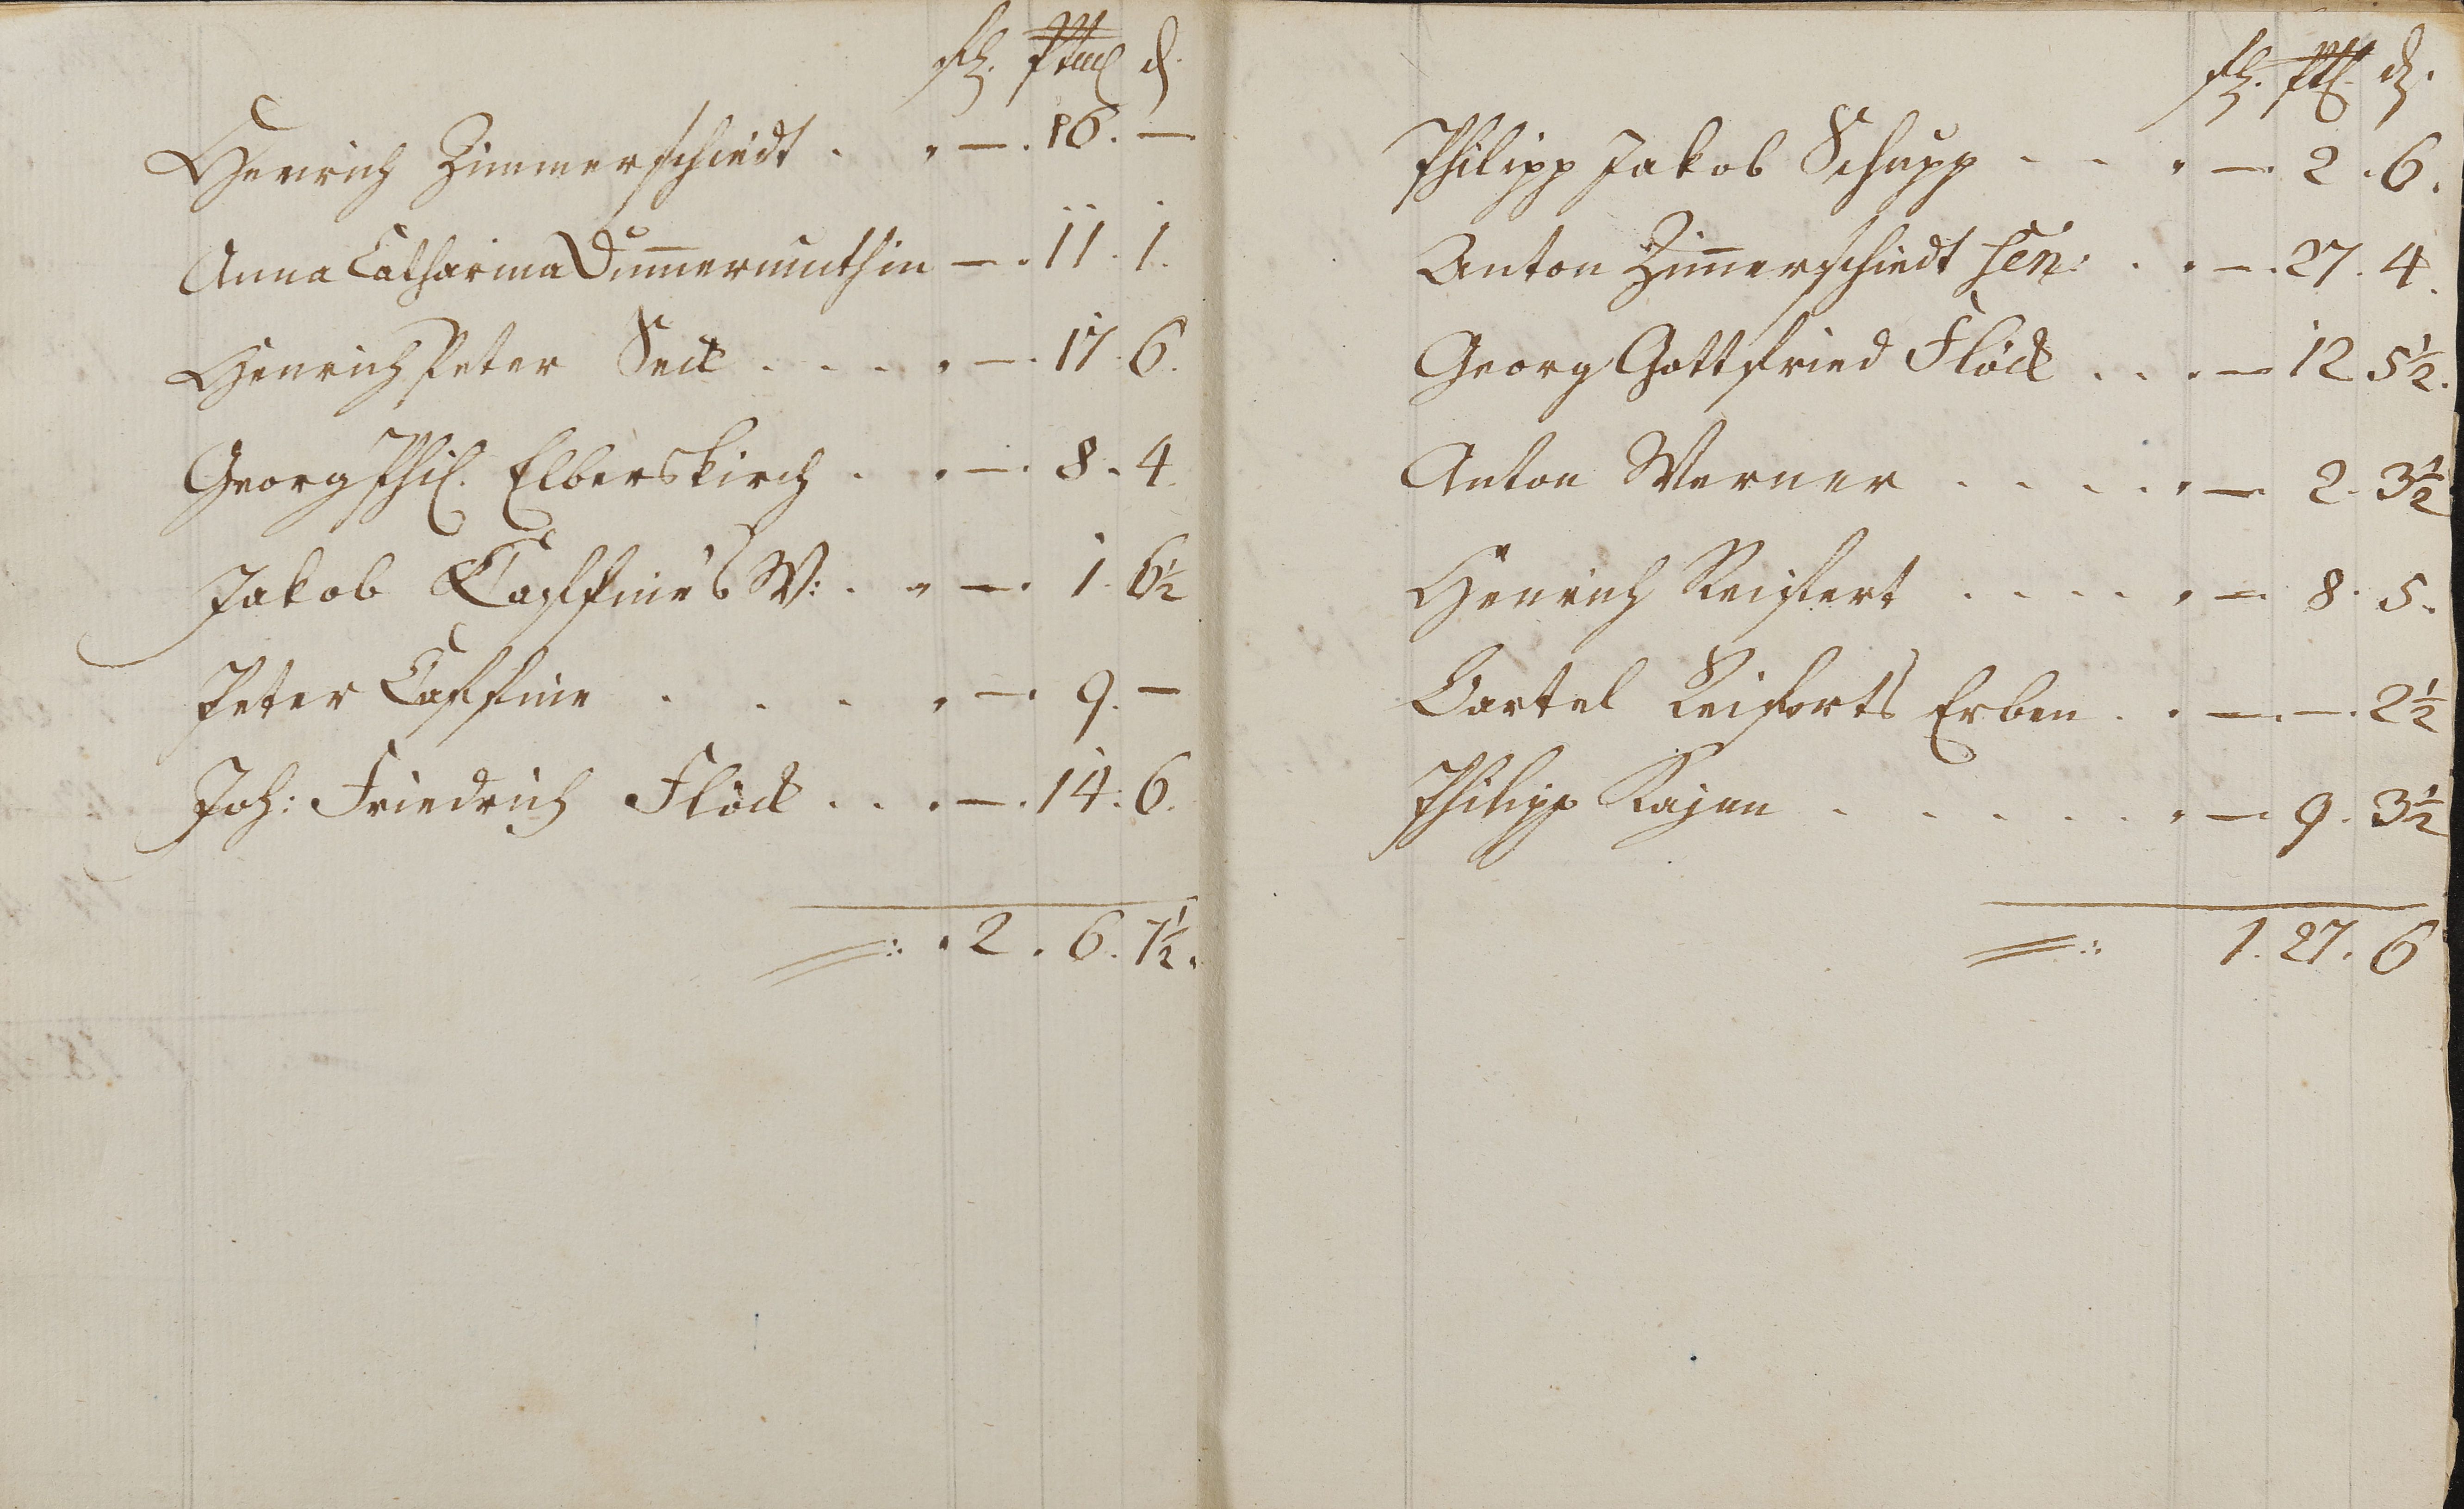 fl. d.
Henrich Zimmerschiedt . . — . 16. —
Anna Catharina Dum̅ermuthin — . 11. 1.
Henrich Peter Seck . . . . — . 17. 6.
Georg Phil. Elberskirch . . — . 8. 4.
Jakob W: . . — . 1. 6½
Peter . . . . — . 9. —
Joh: Friedrich Flöck . . . — . 14. 6.
=: . 2. 6. 7½.
fl. d.
Philipp Jakob Schupp . . . — . 2. 6.
Anton Zim̅erschiedt sen: . . — . 27. 4.
Georg Gottfried Flöck . . . — 12 5½.
Anton Werner . . . . . — 2. 3½
Henrich Reifert . . . . . — 8. 5.
Bartel Reiferts Erben . . — . — . 2½
Philipp . . . . . . — 9. 3½
=: 1. 27. 6